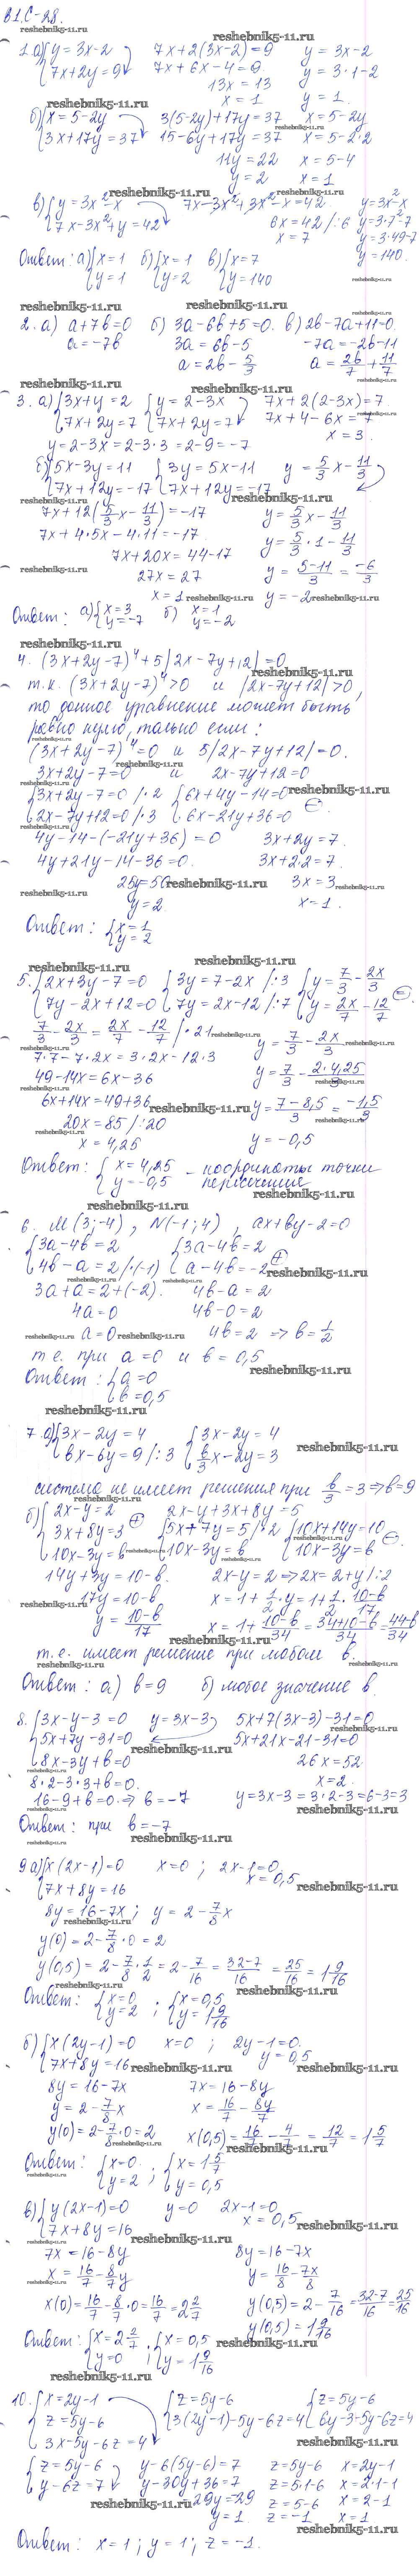 В1. С-28.
1. а) {y = 3x-2 7x+2(3x-2)=9 y = 3x-2
{7x+2y = 9 7x+6x-4=9 y = 3·1-2
13x = 13 y = 1.
x = 1
б) {x = 5-2y 3(5-2y)+17y = 37 x = 5-2y
{3x+17y = 37 15-6y+17y = 37 x = 5-2·2
11y = 22 x = 5-4
y = 2 x = 1
в) {y = 3x²-x 7x-3x²+3x²-x = 42 y = 3x²-x
{7x-3x²+y = 42 6x = 42 /:6 y = 3·7²-7
x = 7 y = 3·49-7
y = 140.
Ответ: а) {x = 1 б) {x = 1 в) {x = 7
{y = 1 {y = 2 {y = 140
2. а) a+7b=0 б) 3a-6b+5=0. в) 2b-7a+11=0.
a = -7b 3a = 6b-5 -7a = -2b-11
a = 2b - 5/3 a = 2b/7 + 11/7
3. а) {3x+y = 2 {y = 2-3x 7x+2(2-3x) = 7.
{7x+2y = 7 {7x+2y = 7 7x+4-6x = 7
y = 2-3x = 2-3·3 = 2-9 = -7 x = 3.
б) {5x-3y = 11 {3y = 5x-11 y = 5/3 x - 11/3
{7x+12y = -17 {7x+12y = -17
7x+12(5/3 x - 11/3) = -17 y = 5/3 x - 11/3
7x+4·5x-4·11 = -17. y = 5/3·1 - 11/3
7x+20x = 44-17 y = (5-11)/3 = -6/3
27x = 27
x = 1 y = -2
Ответ: а) {x = 3 б) {x = 1
{y = -7 {y = -2
4. (3x+2y-7)⁴+5|2x-7y+12| = 0
т.к. (3x+2y-7)⁴>0 и |2x-7y+12|>0,
то данное уравнение может быть
равно нулю, только если:
(3x+2y-7)⁴=0 и 5|2x-7y+12| = 0.
3x+2y-7=0 и 2x-7y+12=0
{3x+2y-7=0 /·2 {6x+4y-14=0
{2x-7y+12=0 /·3 {6x-21y+36=0 (-).
4y-14-(-21y+36) = 0 3x+2y = 7.
4y+21y-14-36=0. 3x+2·2 = 7.
25y = 50 3x = 3
y = 2 x = 1.
Ответ: {x = 1
{y = 2
5. {2x+3y-7=0 {3y = 7-2x /:3 {y = 7/3 - 2x/3
{7y-2x+12=0 {7y = 2x-12 /:7 {y = 2x/7 - 12/7 (-).
7/3 - 2x/3 = 2x/7 - 12/7 /·21 y = 7/3 - 2x/3
7·7-7·2x = 3·2x-12·3
49-14x = 6x-36 y = 7/3 - 2·4,25/3
6x+14x = 49+36 y = (7-8,5)/3 = -1,5/3
20x = 85 /:20
x = 4,25 y = -0,5
Ответ: {x = 4,25 – координаты точки
{y = -0,5 пересечения
6. M(3;-4), N(-1;4), ax+by-2=0
{3a-4b = 2 {3a-4b = 2
{4b-a = 2 /·(-1) {a-4b = -2 (+)
3a+a = 2+(-2). 4b-a = 2
4a = 0 4b-0 = 2
a = 0 4b = 2 => b = 1/2
т.е. при a = 0 и b = 0,5
Ответ: {a = 0
{b = 0,5
7. а) {3x-2y = 4 {3x-2y = 4
{bx-6y = 9 /:3 {b/3 x-2y = 3
система не имеет решения при b/3 = 3 => b = 9
б) {2x-y = 2 2x-y+3x+8y = 5
{3x+8y = 3 (+) {5x+7y = 5 /·2 {10x+14y = 10
{10x-3y = b {10x-3y = b {10x-3y = b (-).
14y+3y = 10-b. 2x-y = 2 => 2x = 2+y /:2
17y = 10-b x = 1+1/2·y = 1+1/2·(10-b)/17
y = (10-b)/17 x = 1+(10-b)/34 = (34+10-b)/34 = (44-b)/34
т.е. имеет решение при любом b.
Ответ: а) b = 9 б) любое значение b
8. {3x-y-3=0 y = 3x-3 5x+7(3x-3)-31=0
{5x+7y-31=0 5x+21x-21-31=0
{8x-3y+b=0 26x = 52.
8·2-3·3+b=0. x = 2.
16-9+b=0. => b = -7 y = 3x-3 = 3·2-3 = 6-3 = 3
Ответ: при b = -7
9. а) {x(2x-1)=0 x = 0; 2x-1=0.
{7x+8y = 16 x = 0,5
8y = 16-7x; y = 2 - 7/8 x
y(0) = 2 - 7/8·0 = 2
y(0,5) = 2 - 7/8·1/2 = 2 - 7/16 = (32-7)/16 = 25/16 = 1 9/16
Ответ: {x = 0 ; {x = 0,5
{y = 2 {y = 1 9/16
б) {x(2y-1)=0 x = 0; 2y-1=0.
{7x+8y = 16 y = 0,5
8y = 16-7x 7x = 16-8y
y = 2 - 7/8 x x = 16/7 - 8y/7
y(0) = 2 - 7/8·0 = 2 x(0,5) = 16/7 - 4/7 = 12/7 = 1 5/7
Ответ: {x = 0. ; {x = 1 5/7
{y = 2 {y = 0,5
в) {y(2x-1)=0 y = 0 2x-1=0
{7x+8y = 16 x = 0,5
7x = 16-8y 8y = 16-7x
x = 16/7 - 8/7 y y = 16/8 - 7x/8
x(0) = 16/7 - 8/7·0 = 16/7 = 2 2/7 y(0,5) = 2 - 7/16 = (32-7)/16 = 25/16
y(0,5) = 1 9/16
Ответ: {x = 2 2/7 ; {x = 0,5
{y = 0 {y = 1 9/16
10. {x = 2y-1 {z = 5y-6 {z = 5y-6
{z = 5y-6 {3(2y-1)-5y-6z = 4 {6y-3-5y-6z = 4
{3x-5y-6z = 4
{z = 5y-6 y-6(5y-6) = 7 z = 5y-6 x = 2y-1
{y-6z = 7 y-30y+36 = 7 z = 5·1-6 x = 2·1-1
-29y = -29 z = 5-6 x = 2-1
y = 1. z = -1 x = 1
Ответ: x = 1; y = 1; z = -1.
reshebnik5-11.ru